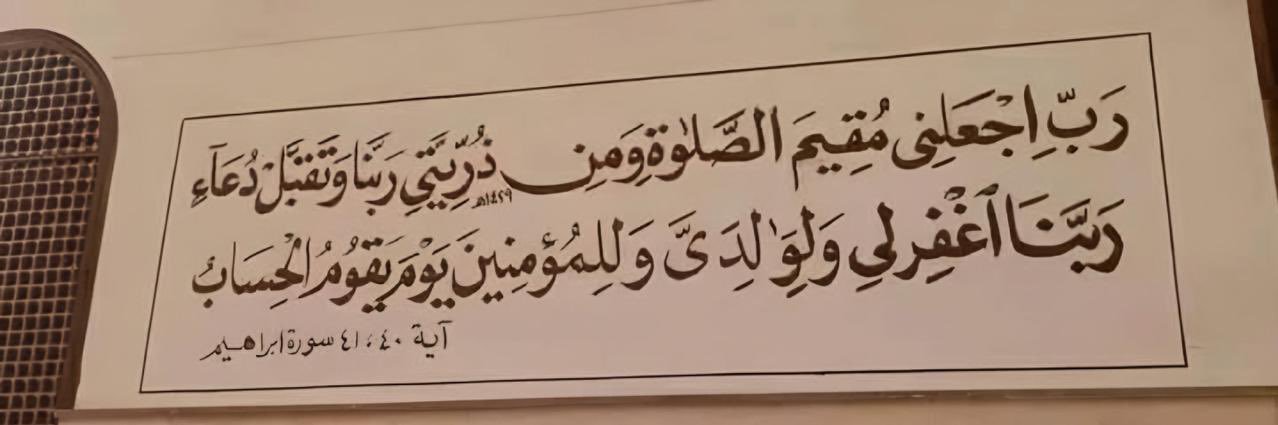 رَبِّ اِجْعَلْنِى مُقِيمَ الصَّلَوٰةِ وَمِن ذُرِّيَّتِي رَبَّنَا وَتَقَبَّلْ دُعَآءِ
١٤٢٩هـ
رَبَّنَا ٱغْفِرْ لِي وَلِوَٰلِدَىَّ وَلِلْمُؤْمِنِينَ يَوْمَ يَقُومُ الْحِسَابُ
آية ٤٠، ٤١ سورة ابراهيم